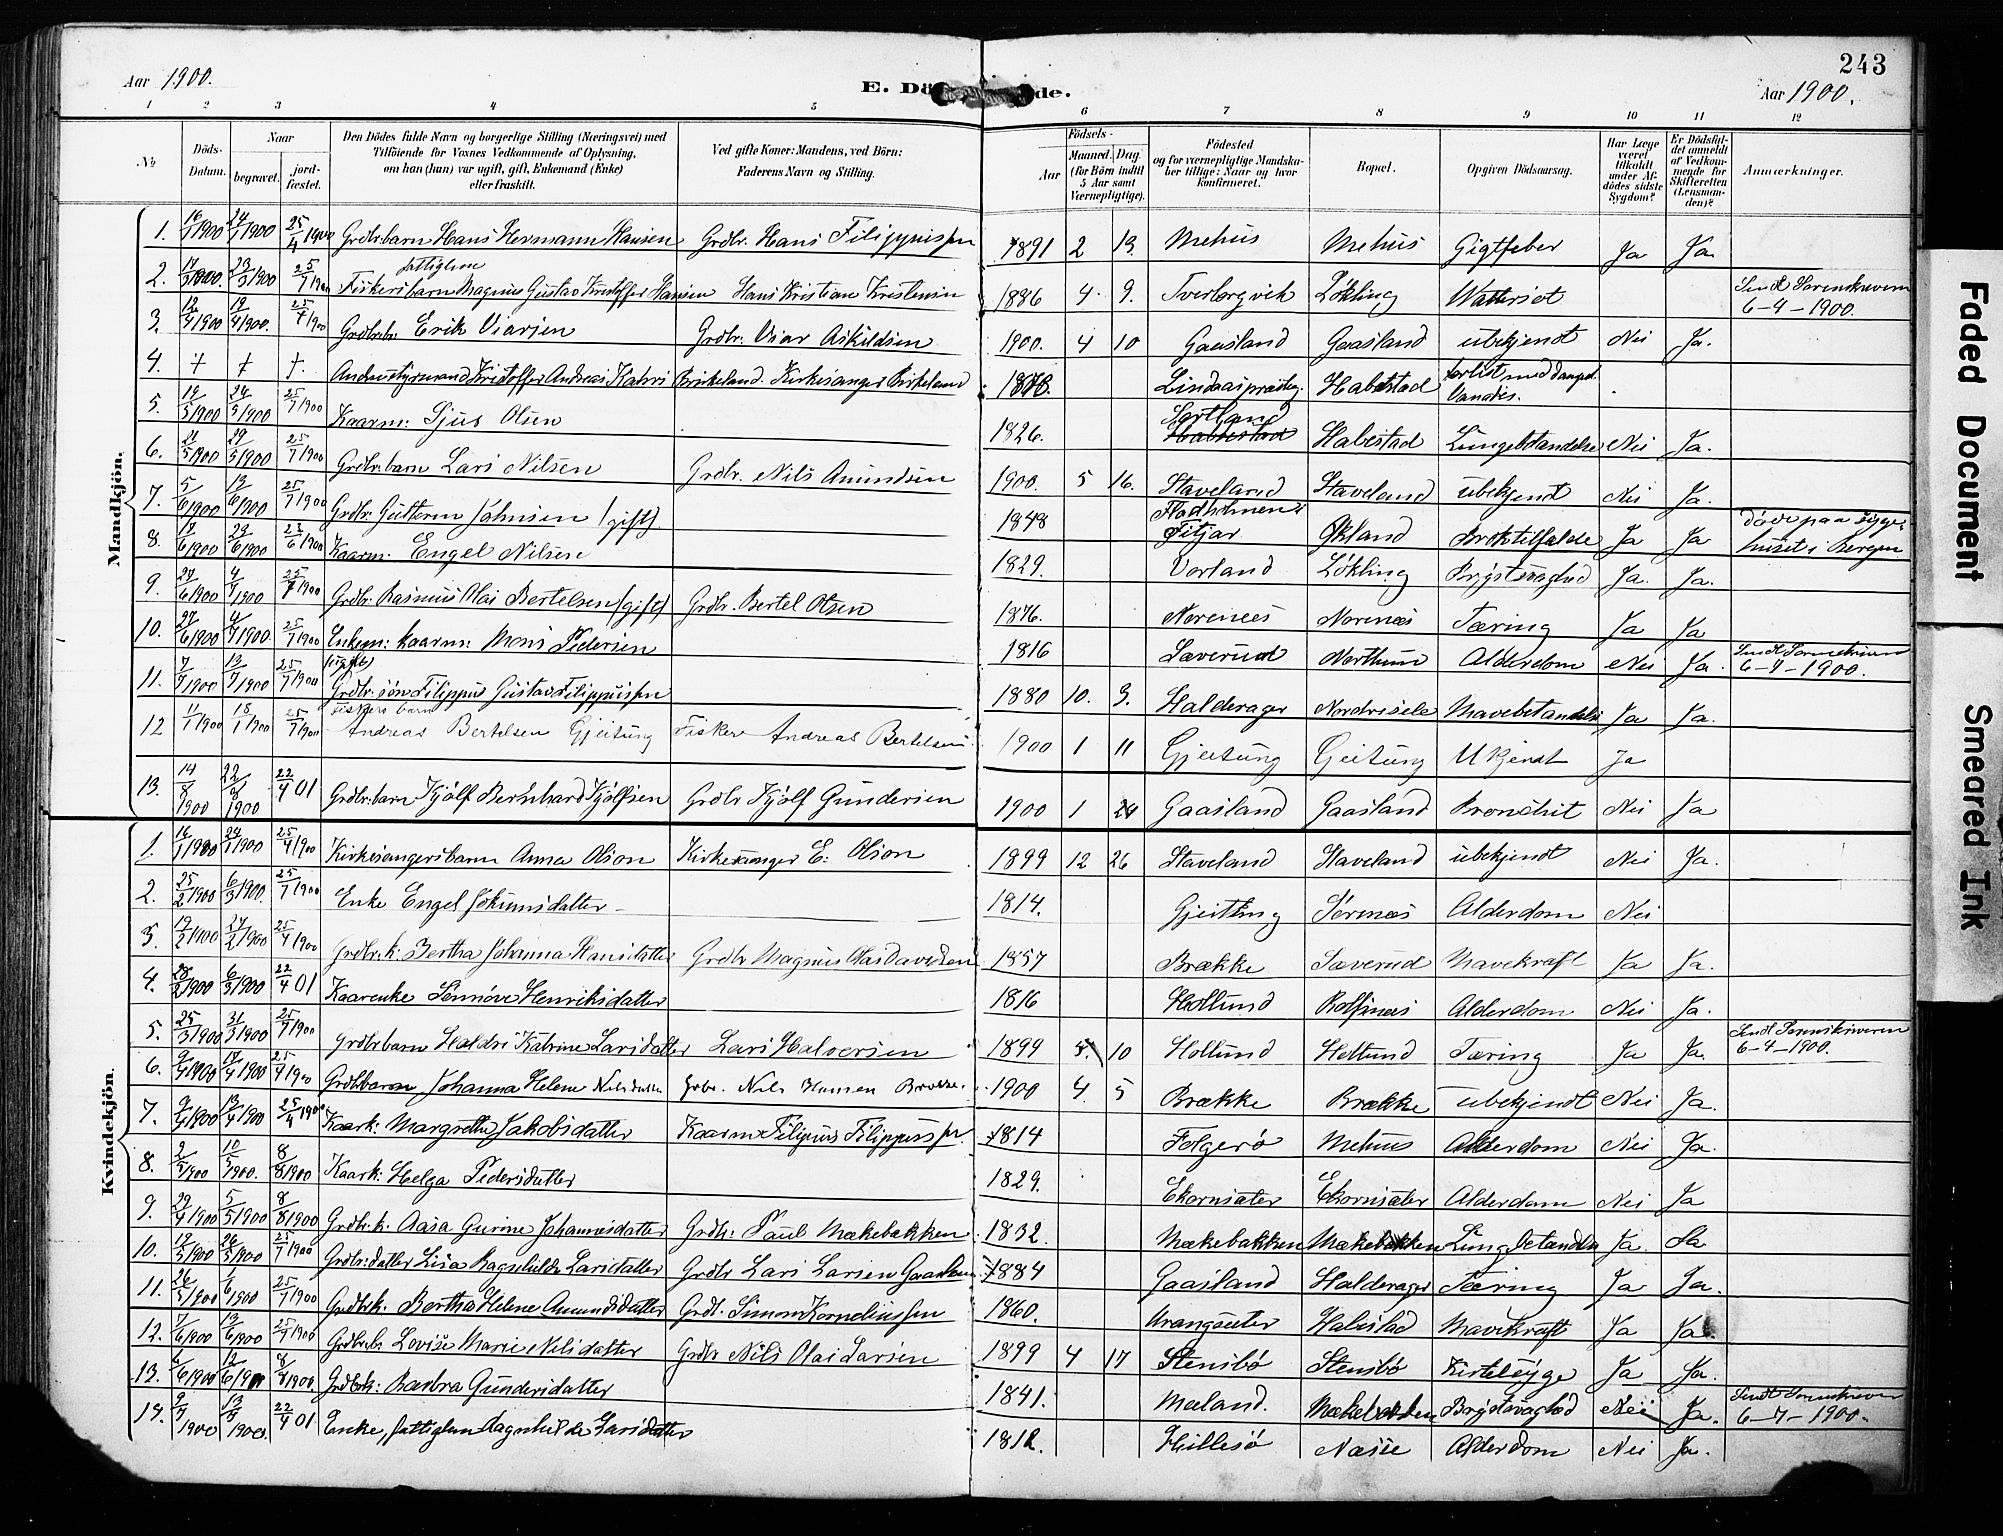 243
Aar 1900.
E. Dö de.
Aar 1900.
1 2 3 4 5 6 7 8 9 10 11 12
No
Döds-Datum.
Naar
begravet.
jord-fæstet.
Den Dödes fulde Navn og borgerlige Stilling (Næringsvei) med
Tilföiende for Voxnes Vedkommende af Oplysning,
om han (hun) var ugift, gift, Enkemand (Enke)
eller fraskilt.
Ved gifte Koner: Mandens, ved Börn:
Faderens Navn og Stilling.
Födsels-
Aar
Maaned. Dag
(for Börn indtil
5 Aar samt
Værnepligtige).
Födested
og for værnepligtige Mandska-
ber tillige: Naar og hvor
konfirmeret.
Bopæl.
Opgiven Dödsaarsag.
Har Læge
været
tilkaldt
under Af-
dödes sidste
Sygdom?
Er Dödsfal-
det anmeldt
af Vedkom-
mende for
Skifteretten
(Lensman-
den)?
Anmærkninger.
Mandkjön.
1. 16/1 1900 24/1 1900 25/4 1900 Grdbr. barn Hans Hermann Hansen Grdbr. Hans Filippussen 1891 2 13. Mehus Mehus Gigtfeber Ja Ja.
2. 17/3 1900. 23/3 1900 25/7 1900 Fiskersbarn Magnus Gustav Kristoffer Hansen Hans Kristian Kristensen 1886 4. 9. Tverborgvik Lökling Wattersot
6-4-1900.
3. 12/4 1900 19/4 1900. 25/4 1900 Grdbr. b: Erik Viarsen Grdbr: Viar Askildsen 1900. 4 10 Gaasland Gaasland ubekjendt Nei Ja.
4. + + +. Andenstyrmand Kristoffer Andreas Birkeland. Kirkesanger Birkeland 1878. Habestad forlist med Dampsk. Vanadis.
5. 19/5 1900 24/5 1900 25/7 1900 Kaarm: Sjus Olsen 1826. Sortland Habestad Habestad Lungebetændelse Nei Ja.
6. 21/5 1900 29/5 1900 25/7 1900 Grdbr. barn Lars Nilsen Grdbr. Nils Amundsen 1900. 5 16. Staveland Staveland ubekjendt Nei Ja.
7. 5/6 1900 13/6 1900 25/7 1900 Grdbr. Guttorm Johnsen (gift). 1848 Fitjar Økland Broktilfælde Ja Ja Döde paa syge-
huset i Bergen
8. 17/6 1900 23/6 1900 23/6 1900 Kaarm: Engel Nilsen 1829. Vorland Lökling Brystsvaghed Ja. Ja.
9. 27/6 1900 4/7 1900 25/7 1900 Grdbr. Rasmus Olai Bertelsen (gift) Grdbr. Bertel Olsen 1876. Norenæs Norenæs Tæring Ja Ja
10. 27/6 1900 4/7 1900. 25/7 1900 Enkem: kaarm: Mons Pedersen 1816 Sæverud Alderdom Nei Ja.
6-7-1900.
(ugift)
11. 7/7 1900 13/7 1900 25/7 1900 Grdbr. sön Filippus Gustav Filippussen 1880 10. 3. Halderager Nordvisele Mavebetændelse Ja Ja.
Fiskers barn
12 11/1 1900 18/1 1900 25/7 1900 Andreas Bertelsen Gjeitung Fisker Andreas Bertelsen 1900 1 11 Gjeitung Gjeitung Ukjendt Ja
13. 14/8 1900 22/8 1900 22/4 01 Grdbr. barn Kjölf Bernhard Kjölfsen Grdbr Kjölf Gundersen 1900 1 24 Gaasland Gaasland Bronchit Nei Ja
Kvindekjön.
1. 16/1 1900 24/1 1900 25/4 1900 Kirkesangersbarn Anna Olson Kirkesanger E: Olson 1899 12 26 Staveland Staveland ubekjendt Nei Ja.
2. 25/2 1900 6/3 1900. 25/7 1900 Enke Engel Jökumsdatter 1814. Gjeitung Sörnæs Alderdom Nei
3. 19/2 1900 27/2 1900 25/4 1900 Grdbr. k: Bertha Johanna Hansdatter Grdbr Magnus Olas Davidsen 1857 Brække Sæverud Mavekraft Ja Ja.
4. 28/2 1900 6/3 1900 22/4 01 Kaarenke Sennöve Henriksdatter 1816 Hollund Rolfsnæs Alderdom Nei Ja.
5. 25/3 1900 31/3 1900 25/7 1900 Grdbr barn Haldri Katrine Larsdatter Lars Halversen 1899 5. 10 Hollund Hollund Tæring Ja Ja.
6-4-1900.
6. 9/4 1900 17/4 1900 25/4 1900 Grdbr barn Johanna Helene Nilsdatter Grbr. Nils Hansen Brække. 1900 4. 5 Brække Brække ubekjendt Nei Ja.
7. 9/4 1900 13/4 1900 25/4 1900 Kaark: Margrethe Jakobsdatter Kaarm Filipus Filippussen. 1814 Folgerö Mehus Alderdom Nei Ja.
8. 2/5 1900 10/5 1900. 8/8 1900 Kaark: Helga Pedersdatter 1829. Ekornsæter Ekornsæter Alderdom Nei Ja
9. 29/4 1900 5/5 1900 8/8 1900 Grdbr. k: Aasa Gurine Johannesdatter Grdbr: Paul Mækebakken 1832. Mækebakken Mækebakken Ja. Ja
10. 12/5 1900 26/5 1900 25/7 1900 Grdbr: datter Lisa Ragnhilde Larsdatter Grdbr Lars Larsen Gaasland 1884 Gaasland Halderager Tæring Ja Ja.
11. 26/5 1900 1/6 1900 25/7 1900 Grdbrk. Bertha Helene Amundsdatter Grdb. Simon Korneliussen 1860. Vrangsæter Habestad Mavekraft Ja Ja
12. 7/6 1900 13/6 1900 25/7 1900 Grdbr. b Lovise Marie Nilsdatter Grdbr Nils Olai Larsen 1899 4 17 Stensbö Stensbö Kirtelsyge Ja Ja.
13. 6/6 1900 12/6 1900 8/8 1900 Grdbrk: Barbra Gundersdatter 1841. Mæland. Mækebakken Brystsvaghed Nei Ja.
6-7-1900.
14. 9/7 1900 13/7 1900 22/4 01 Enke, fattiglem Ragnhilde Larsdatter 1812. Hillesö Næsse Alderdom Nei Ja.
Faded Document
Smeared Ink